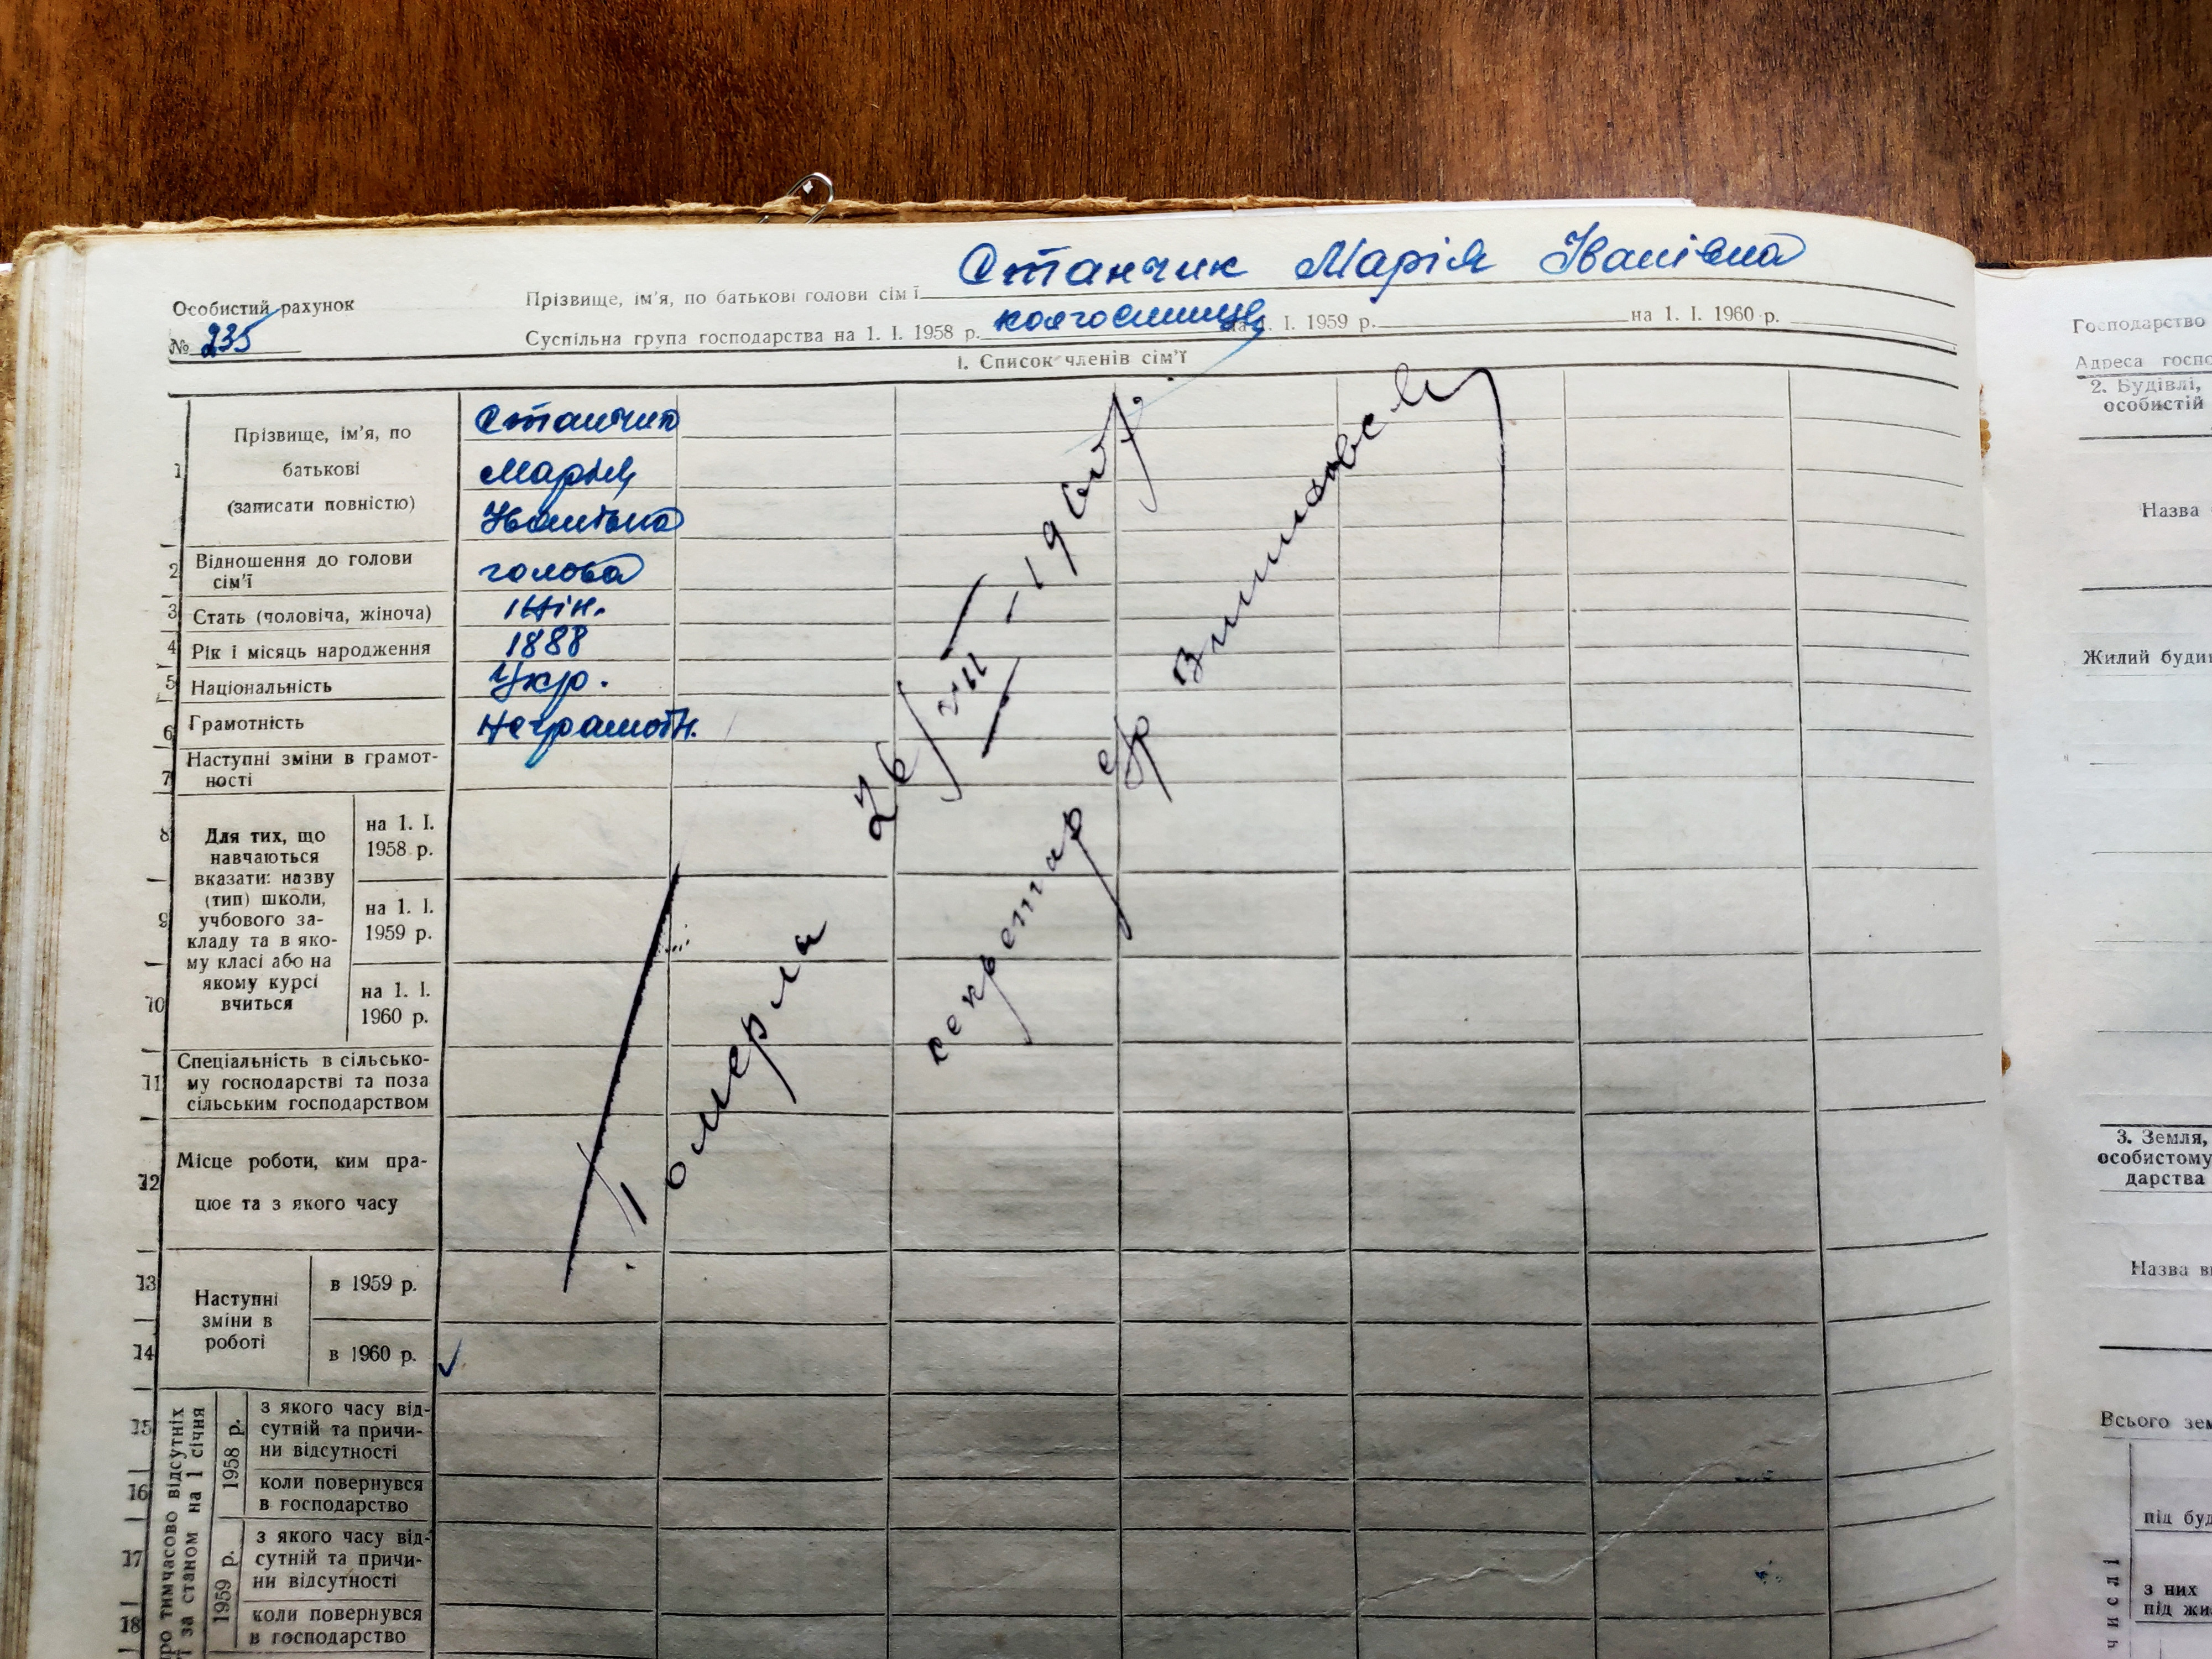 Станчик Марія Іванівна
Особистий рахунок
№ 235
Прізвище, ім'я, по батькові голови сім'ї
Суспільна група господарства на 1. І. 1958 р. колгоспниця на 1. І. 1959 р. на 1. І. 1960 р.
І. Список членів сім'ї
1 Прізвище, ім'я, по
батькові
(записати повністю)
Станчик
Марія
Іванівна
2 Відношення до голови
сім'ї
голова
3 Стать (чоловіча, жіноча) жін.
4 Рік і місяць народження 1888
5 Національність Укр.
6 Грамотність Неграмотн.
7 Наступні зміни в грамот-
ності
8
9
10
Для тих, що
навчаються
вказати: назву
(тип) школи,
учбового за-
кладу та в яко-
му класі або на
якому курсі
вчиться
на 1. І.
1958 р.
на 1. І.
1959 р.
на 1. І.
1960 р.
11 Спеціальність в сільсько-
му господарстві та поза
сільським господарством
12 Місце роботи, ким пра-
цює та з якого часу
Наступні
зміни в
роботі
13 в 1959 р.
14 в 1960 р.
тимчасово відсутніх
за станом на 1 січня
1958 р.
15 з якого часу від-
сутній та причи-
ни відсутності
16 коли повернувся
в господарство
1959 р.
17 з якого часу від-
сутній та причи-
ни відсутності
18 коли повернувся
в господарство
Померла 26/VII - 1960 р.
секретар с/р
Господарство
Адреса
2. Будівлі,
особистій
Назва
Жилий
3. Земля,
особистому
дарства
Назва
Всього
під
з них
під
числі